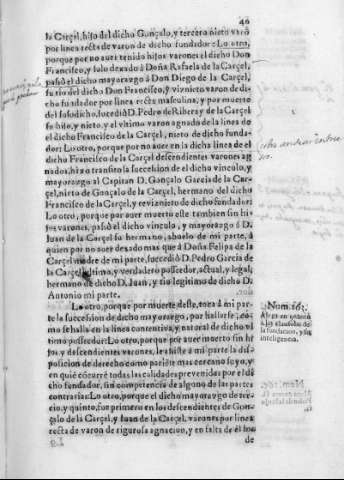 40
la Carçel, hijo del dicho Gonçalo, y tercero nieto varõ
por linea recta de varon de dicho fundador: Lo otro,
porque por no auer tenido hijos varones el dicho Don
Francisco, y solo dexado à Doña Rafaela de la Carçel,
passò el dicho mayorazgo à Don Diego de la Carçel,
su tio del dicho Don Francisco, y viznieto varon de di-
cho fundador por linea recta masculina, y por muerte
del susodicho, sucediò D. Pedro de Ribera y de la Carçel
su hijo, y nieto, y el vltimo varon agnado de la linea de
el dicho Francisco de la Carçel, nieto de dicho funda-
dor: Lo otro, porque por no auer en la dicha linea de el
dicho Francisco de la Carçel descendientes varones ag-
nados, hizo transito la sucession de el dicho vinculo, y
mayorazgo al Capitan D. Gonçalo Garcia de la Car-
çel, nieto de Gonçalo de la Carçel, hermano del dicho
Francisco de la Carçel, y revizanieto de dicho fundador:
Lo otro, porque por auer muerto este tambien sin hi-
jos varones, passò el dicho vinculo, y mayorazgo à D.
Juan de la Carçel su hermano, abuelo de mi parte, à
quien por no auer dexado mas que à Doña Felipa de la
Carçel madre de mi parte, sucediò D. Pedro Garcia de
la Carçel, vltimo, y verdadero posseedor, actual, y legal,
hermano de dicho D. Juan, y tio legitimo de dicho D.
Antonio mi parte.
Lo otro, porque por muerte deste, toca à mi par-
te la succession de dicho mayorazgo, por hallarse, co-
mo se halla en la linea contentiva, y natural de dicho vl-
timo posseedor: Lo otro, porque por auer muerto sin hi-
jos y descendientes varones, le assiste à mi parte la dis-
posicion de derecho como pariente mas cercano suyo, y
en quiē cōcurrē todas las calidades prevenidas por el di-
cho fundador, sin competencia de alguno de las partes
contrarias: Lo otro, porque el dicho mayorazgo de ter-
cio, y quinto, fue primero en los descendientes de Gon-
çalo de la Carçel, y Juan de la Carçel, varones por linea
recta de varon de rigurosa agnacion, y en falta de ellos
de
Num. 163.
la fundacion, y su
inteligencia.